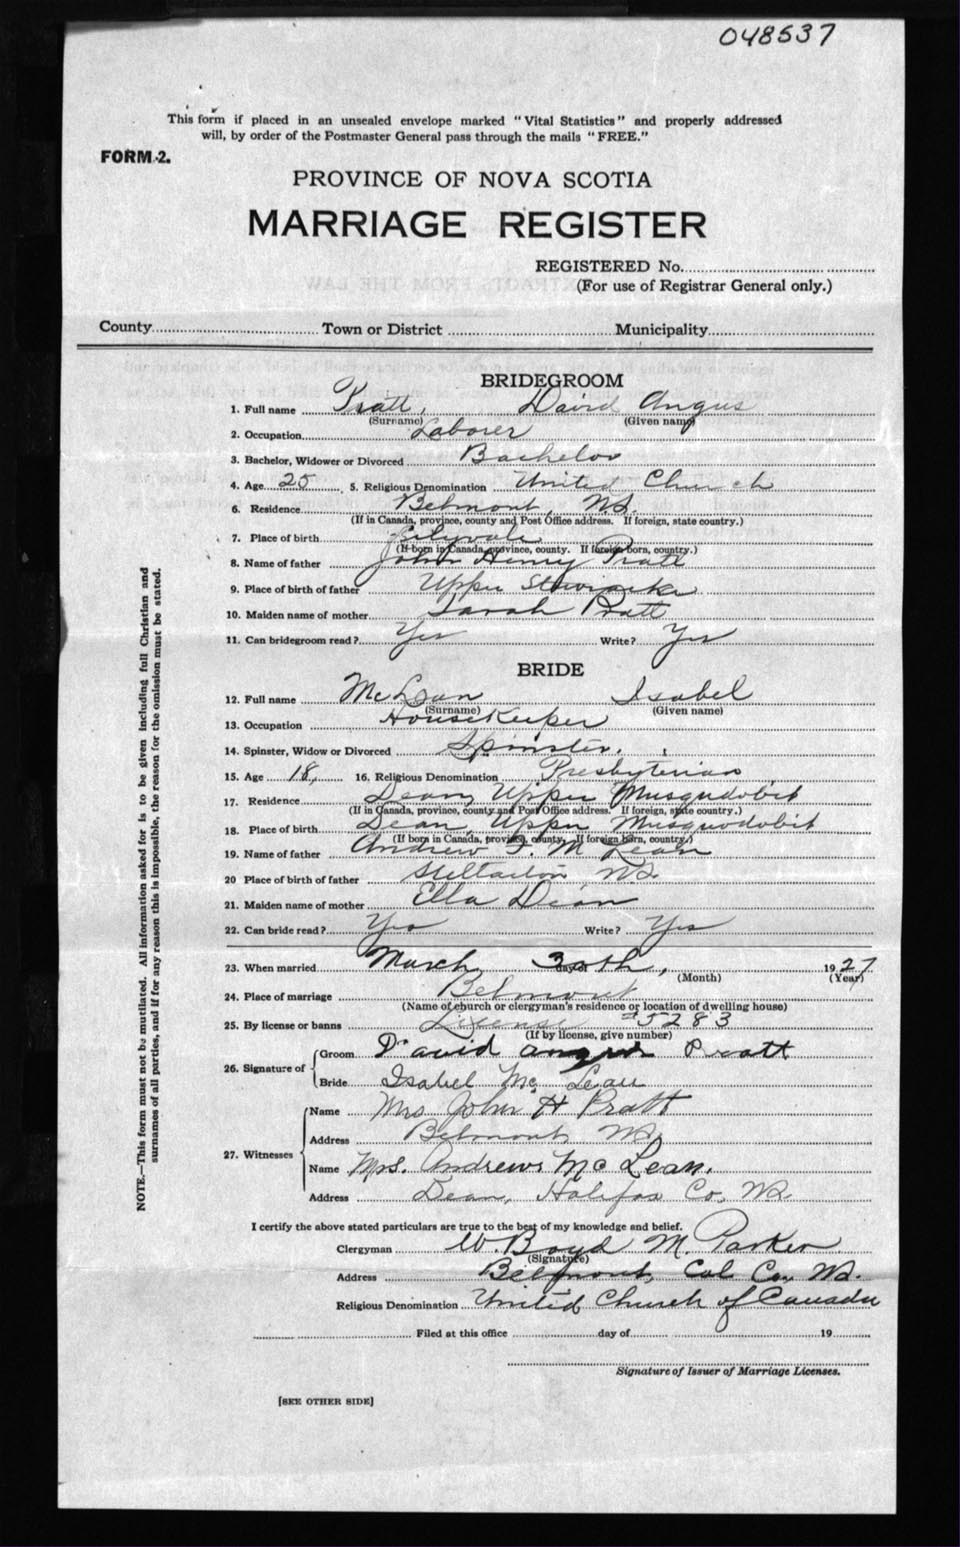 048537
This form if placed in an unsealed envelope marked "Vital Statistics" and properly addressed
will, by order of the Postmaster General pass through the mails "FREE."
FORM 2.
PROVINCE OF NOVA SCOTIA
MARRIAGE REGISTER
REGISTERED No.
(For use of Registrar General only.)
County Town or District Municipality
BRIDEGROOM
1. Full name Pratt, David Angus
(Surname) (Given name)
2. Occupation Laborer
3. Bachelor, Widower or Divorced Bachelor
4. Age 25 5. Religious Denomination United Church
6. Residence Belmont, N.S.
(If in Canada, province, county and Post Office address. If foreign, state country.)
7. Place of birth
(If born in Canada, province, county. If foreign born, country.)
8. Name of father John Henry Pratt
9. Place of birth of father Upper Stewiacke
10. Maiden name of mother Sarah Pratt
11. Can bridegroom read? Yes Write? Yes
BRIDE
12. Full name McLean Isabel
(Surname) (Given name)
13. Occupation Housekeeper
14. Spinster, Widow or Divorced Spinster.
15. Age 18, 16. Religious Denomination Presbyterian
17. Residence Dean, Upper Musquodobit
(If in Canada, province, county and Post Office address. If foreign, state country.)
18. Place of birth Dean, Upper Musquodobit
(If born in Canada, province, county. If foreign born, country.)
19. Name of father Andrew F. McLean
20 Place of birth of father N.S.
21. Maiden name of mother Ella Dean
22. Can bride read? Yes Write? Yes
23. When married March 30th, day of 1927
(Month) (Year)
24. Place of marriage Belmont
(Name of church or clergyman's residence or location of dwelling house)
25. By license or banns License #5283
(If by license, give number)
26. Signature of Groom David Angus Pratt
Bride Isabel Mc Lean
27. Witnesses Name Mrs John H Pratt
Address Belmont, N.S.
Name Mrs. Andrew Mc Lean.
Address Dean, Halifax Co, N.S.
I certify the above stated particulars are true to the best of my knowledge and belief.
Clergyman W. Boyd M. Parker
(Signature)
Address Belmont, Col Co., N.S.
Religious Denomination United Church of Canada
Filed at this office day of 19
Signature of Issuer of Marriage Licenses.
[SEE OTHER SIDE]
NOTE.—This form must not be mutilated. All information asked for is to be given including full Christian and
surnames of all parties, and if for any reason this is impossible, the reason for the omission must be stated.